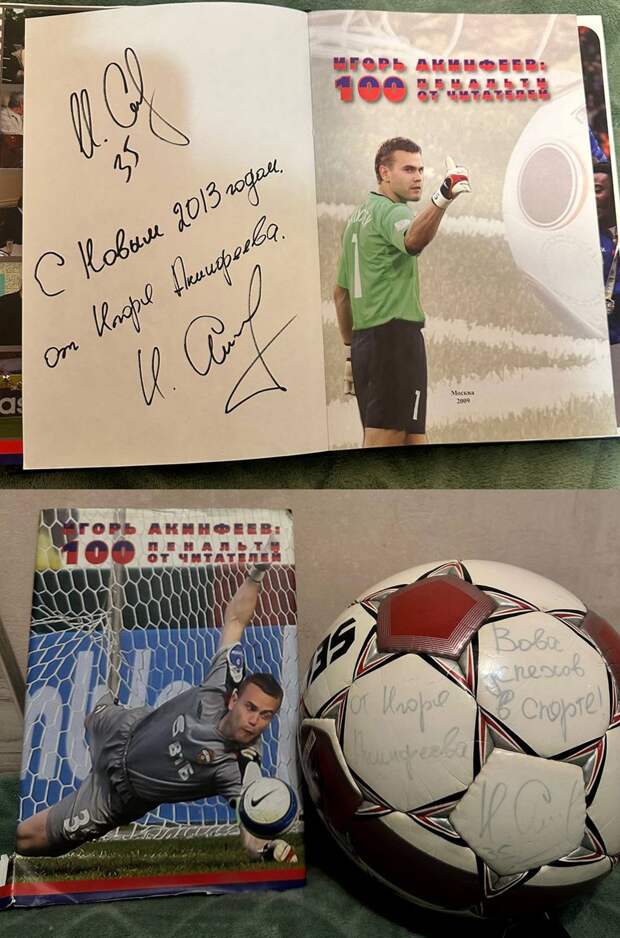 И. Акин
35
С Новым 2013 годом.
от Игоря Акинфеева.
И. Акин
ИГОРЬ АКИНФЕЕВ:
100 ПЕНАЛЬТИ
ОТ ЧИТАТЕЛЕЙ
1
1
Москва
2009
as
ИГОРЬ АКИНФЕЕВ:
100 ПЕНАЛЬТИ
ОТ ЧИТАТЕЛЕЙ
3
35
Вова
успехов
в спорте!
от Игоря
Акинфеева
И. Акин
35